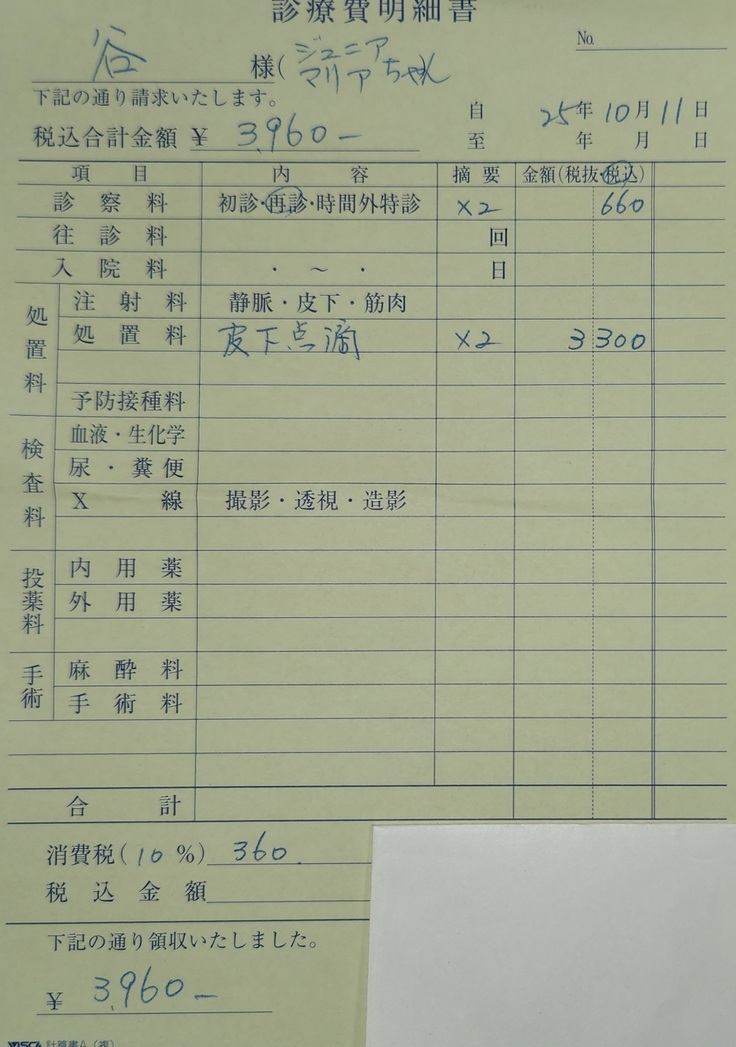 診療費明細書
No.
谷 様(ジュニア マリアちゃん
下記の通り請求いたします。
自 25年10月11日
税込合計金額 ¥ 3,960-
至 年 月 日
項 目 内 容 摘 要 金額(税抜・税込)
診 察 料 初診・再診・時間外特診 ×2 660
往 診 料 回
入 院 料 ・ ~ ・ 日
処置料
注 射 料 静脈・皮下・筋肉
処 置 料 皮下点滴 ×2 3300
予防接種料
検査料
血液・生化学
尿・糞便
X 線 撮影・透視・造影
投薬料
内 用 薬
外 用 薬
手術
麻 酔 料
手 術 料
合 計
消費税(10%) 360
税 込 金 額
下記の通り領収いたしました。
¥ 3,960-
VISCA 計算書A(複)